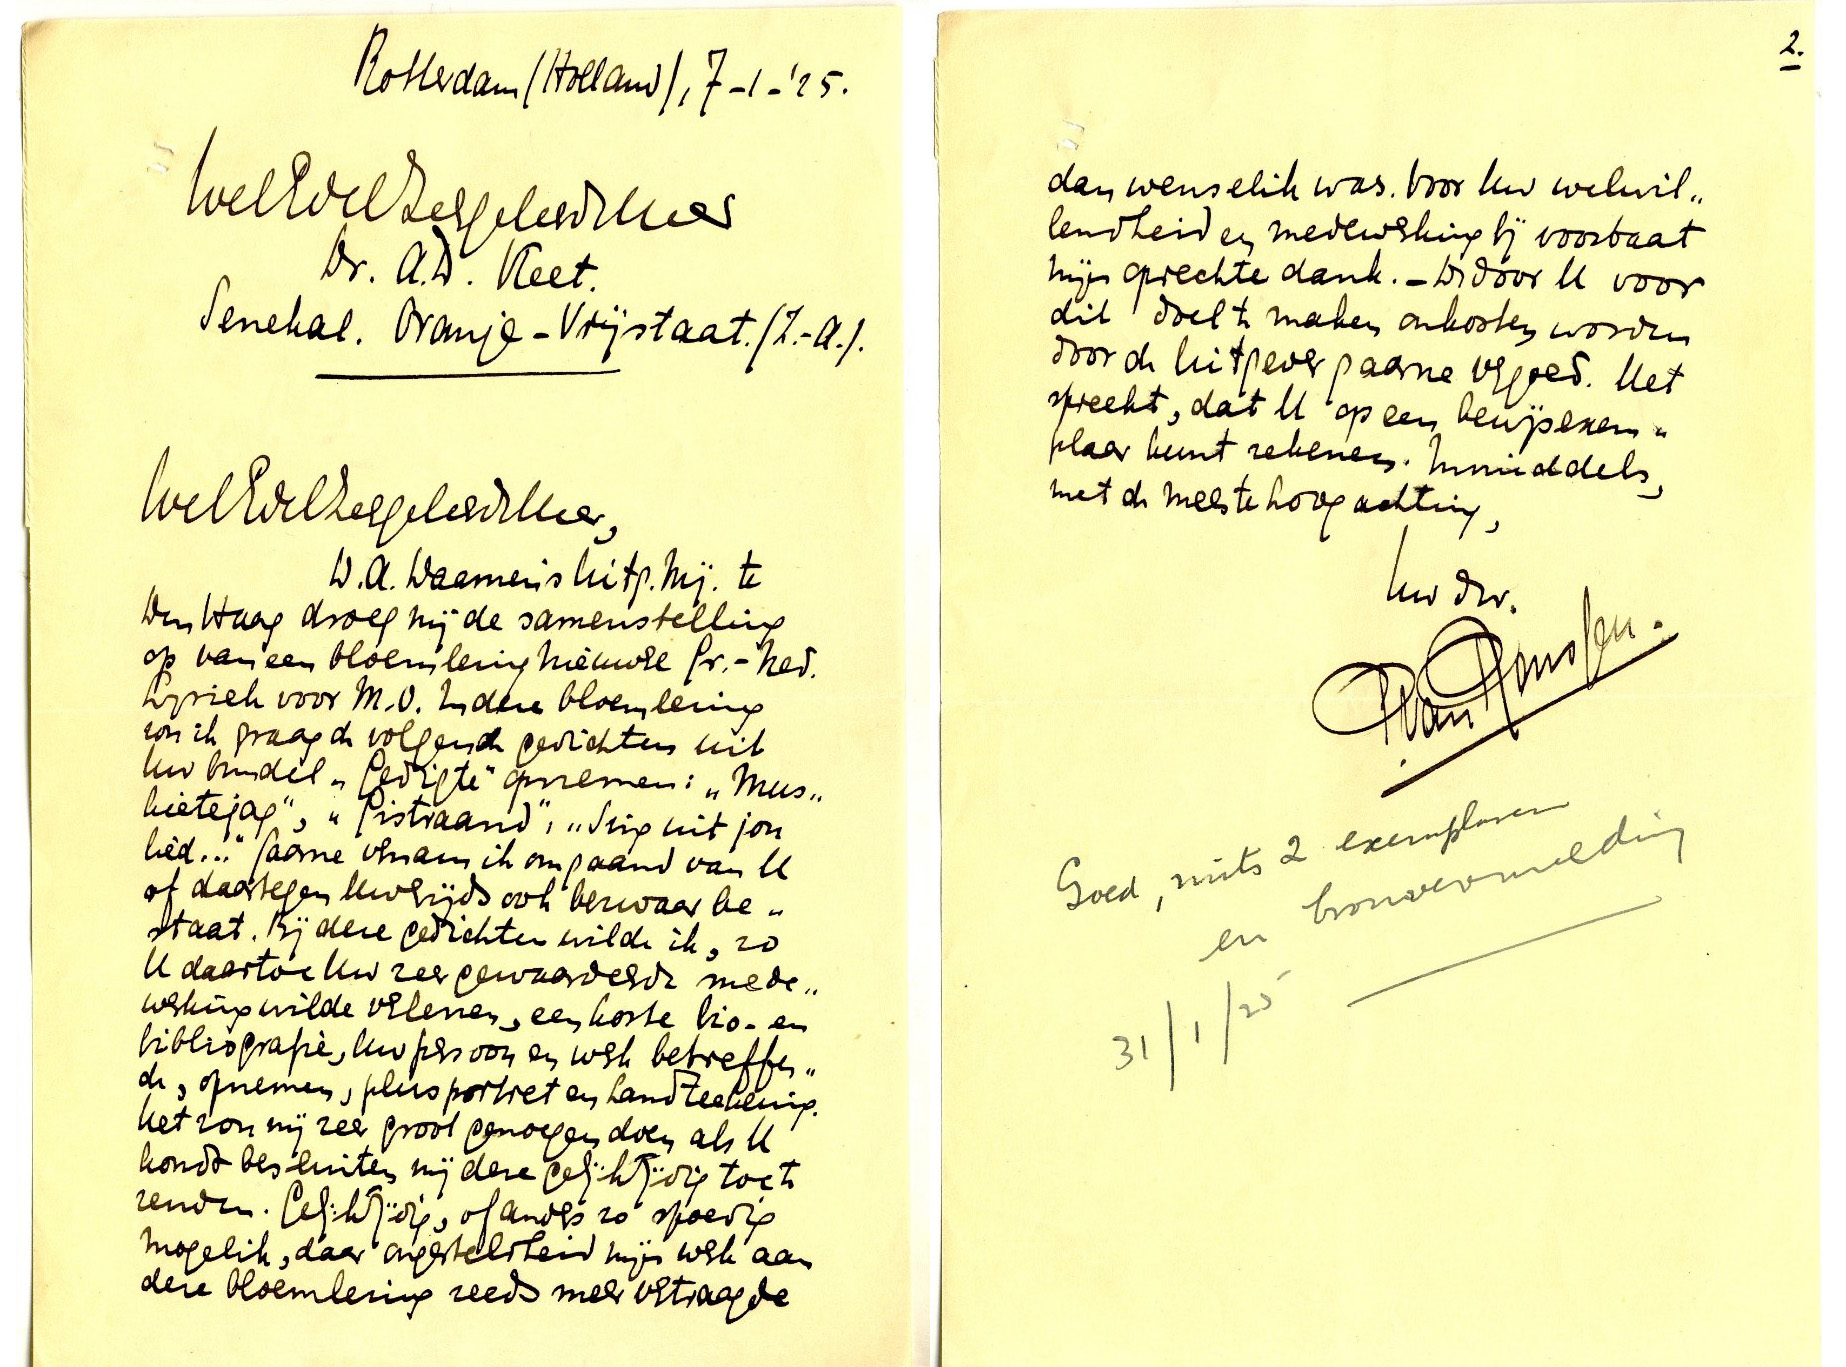 Rotterdam (Holland), 7-1-'25.
WelEdelZeergeleerde Heer
Dr. A.D. Keet.
Senekal. Oranje-Vrijstaat. (Z.-A.).
WelEdelZeergeleerde Heer,
D.A. Daamen's Uitg. Mij. te
Den Haag droeg mij de samenstelling
op van een bloemlezing nieuwe Gr.-Ned.
Lyriek voor M.O. In deze bloemlezing
zou ik graag de volgende gedichten uit
Uw bundel „Gedigte" opnemen: „Mus„
kietejag", „Gistraand", „Sing uit jou
lied..." Gaarne vernam ik omgaand van U
of daartegen Uwerzijds ook bezwaar be„
staat. Bij deze gedichten wilde ik, zo
U daartoe Uw zeer gewaardeerde mede„
werking wilde verlenen, een korte bio- en
bibliografie, Uw persoon en werk betreffen„
de, opnemen, plus portret en handteekening.
Het zou mij zeer groot genoegen doen als U
kondt besluiten mij deze gelijktijdig toe te
zenden. Gelijktijdig, of anders zo spoedig
mogelik, daar ongesteldheid mijn werk aan
deze bloemlezing reeds meer vertraagde
2.
dan wenselik was. Voor Uw welwil„
lendheid en medewerking bij voorbaat
mijn oprechte dank. - De door U voor
dit doel te maken onkosten worden
door de Uitgever gaarne vergoed. Het
spreekt, dat U op een bewijsexem„
plaar kunt rekenen. Inmiddels,
met de meeste hoogachting,
Uw dw.
P. van Renssen.
Goed, mits 2 exemplaren
en bronvermelding
31/1/25